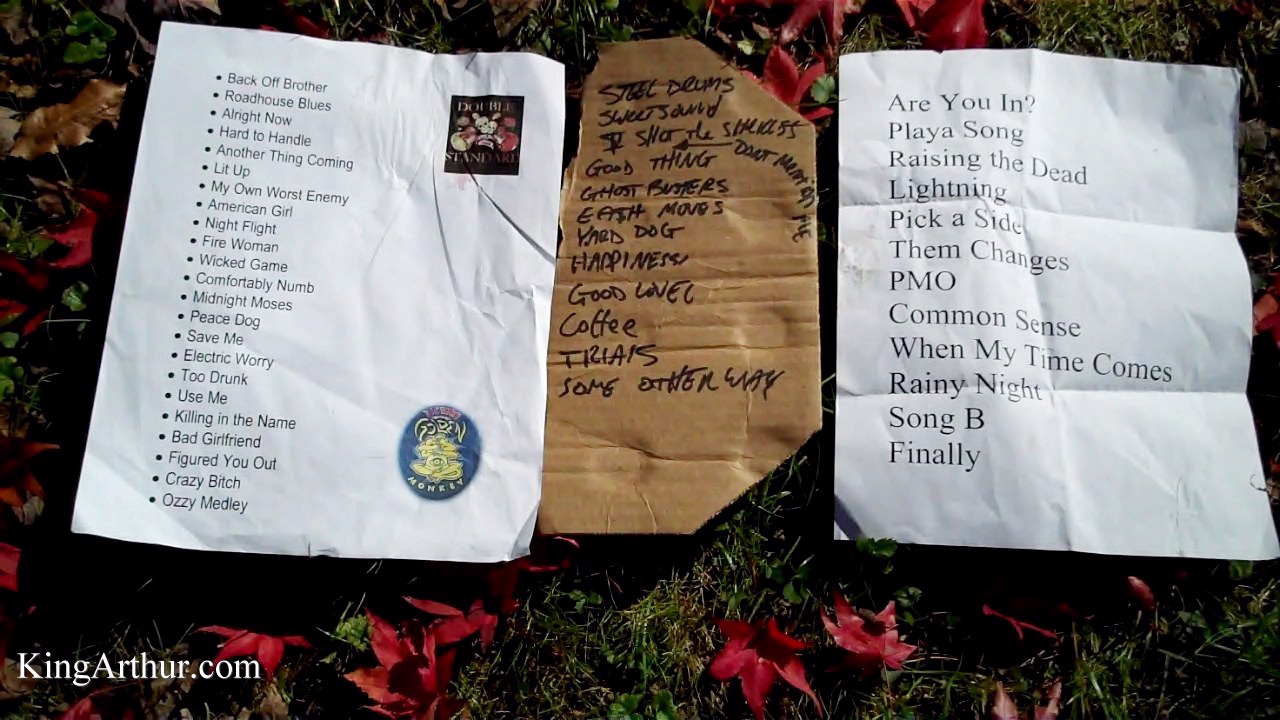 Back Off Brother
Roadhouse Blues
Alright Now
Hard to Handle
Another Thing Coming
Lit Up
My Own Worst Enemy
American Girl
Night Flight
Fire Woman
Wicked Game
Comfortably Numb
Midnight Moses
Peace Dog
Save Me
Electric Worry
Too Drunk
Use Me
Killing in the Name
Bad Girlfriend
Figured You Out
Crazy Bitch
Ozzy Medley
DOUBLE
STANDARD
GOLDEN
MONKEY
STEEL DRUMS
SWEET SOUND
SHOT the
GOOD THING
GHOST BUSTERS
MOVES
YARD DOG
HAPPINESS
GOOD
Coffee
TRIALS
SOME OTHER WAY
Are You In?
Playa Song
Raising the Dead
Lightning
Pick a Side
Them Changes
PMO
Common Sense
When My Time Comes
Rainy Night
Song B
Finally
KingArthur.com